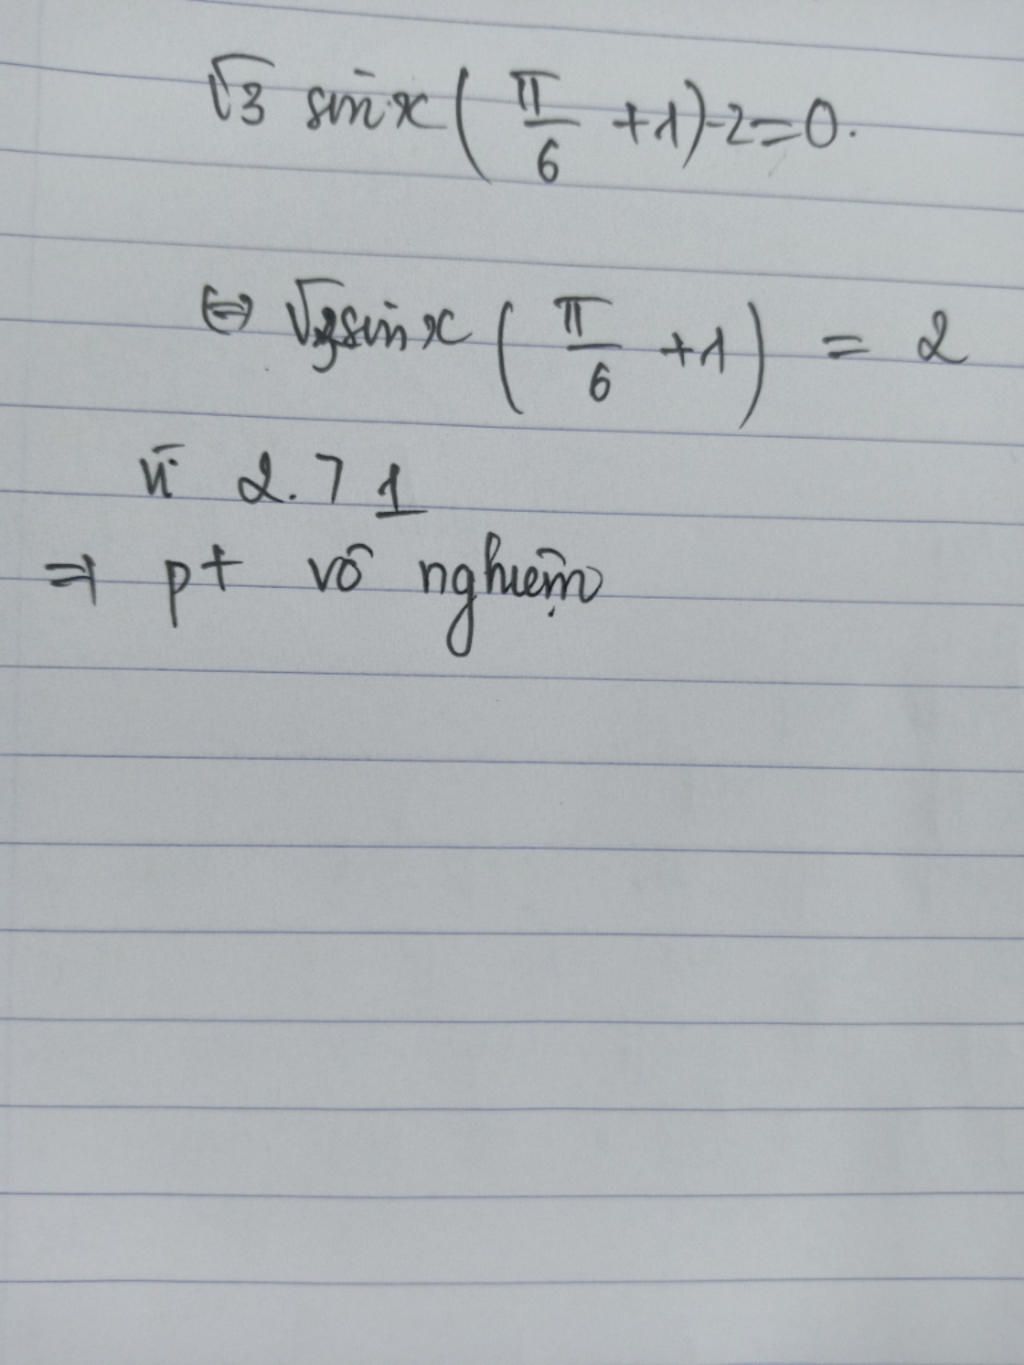 √3 sin x ( π/6 + 1 ) - 2 = 0.
⇔ √3 sin x ( π/6 + 1 ) = 2
Vì 2 > 1
⇒ pt vô nghiệm